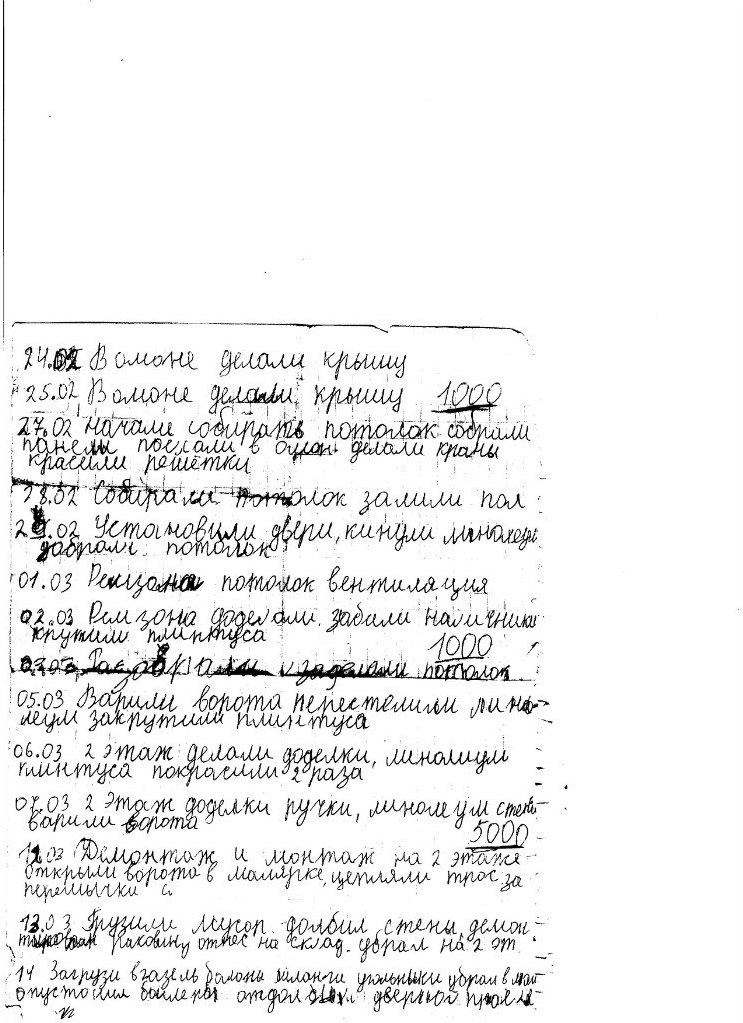 24.02 В омоне делали крышу
25.02 В омоне делали крышу 1000
27.02 начали собирать потолок собрали
панели поехали в омон делали краны
красили решетки
28.02 Собирали потолок залили пол
29.02 Установили двери, кинули линолеум
добрали потолок
01.03 Ремзона потолок вентиляция
02.03 Рем зона доделали забили наличники
крутили плинтуса 1000
заделали потолок
05.03 Варили ворота перестелили лино-
леум закрутили плинтуса
06.03 2 этаж делали доделки, линолиум
плинтуса покрасили 2 раза
07.03 2 этаж доделки ручки, линолеум
варили ворота 5000
12.03 Демонтаж и монтаж на 2 этаже
открыли ворота в малярке, цепляли трос за
перемычки с
13.03 Грузили мусор долбил стены, демон-
раковину отнес на склад. убрал на 2 эт.
14 Загрузи в газель балоны шланги угольники убрал в
опустошил бойлеры отдолбил дверной